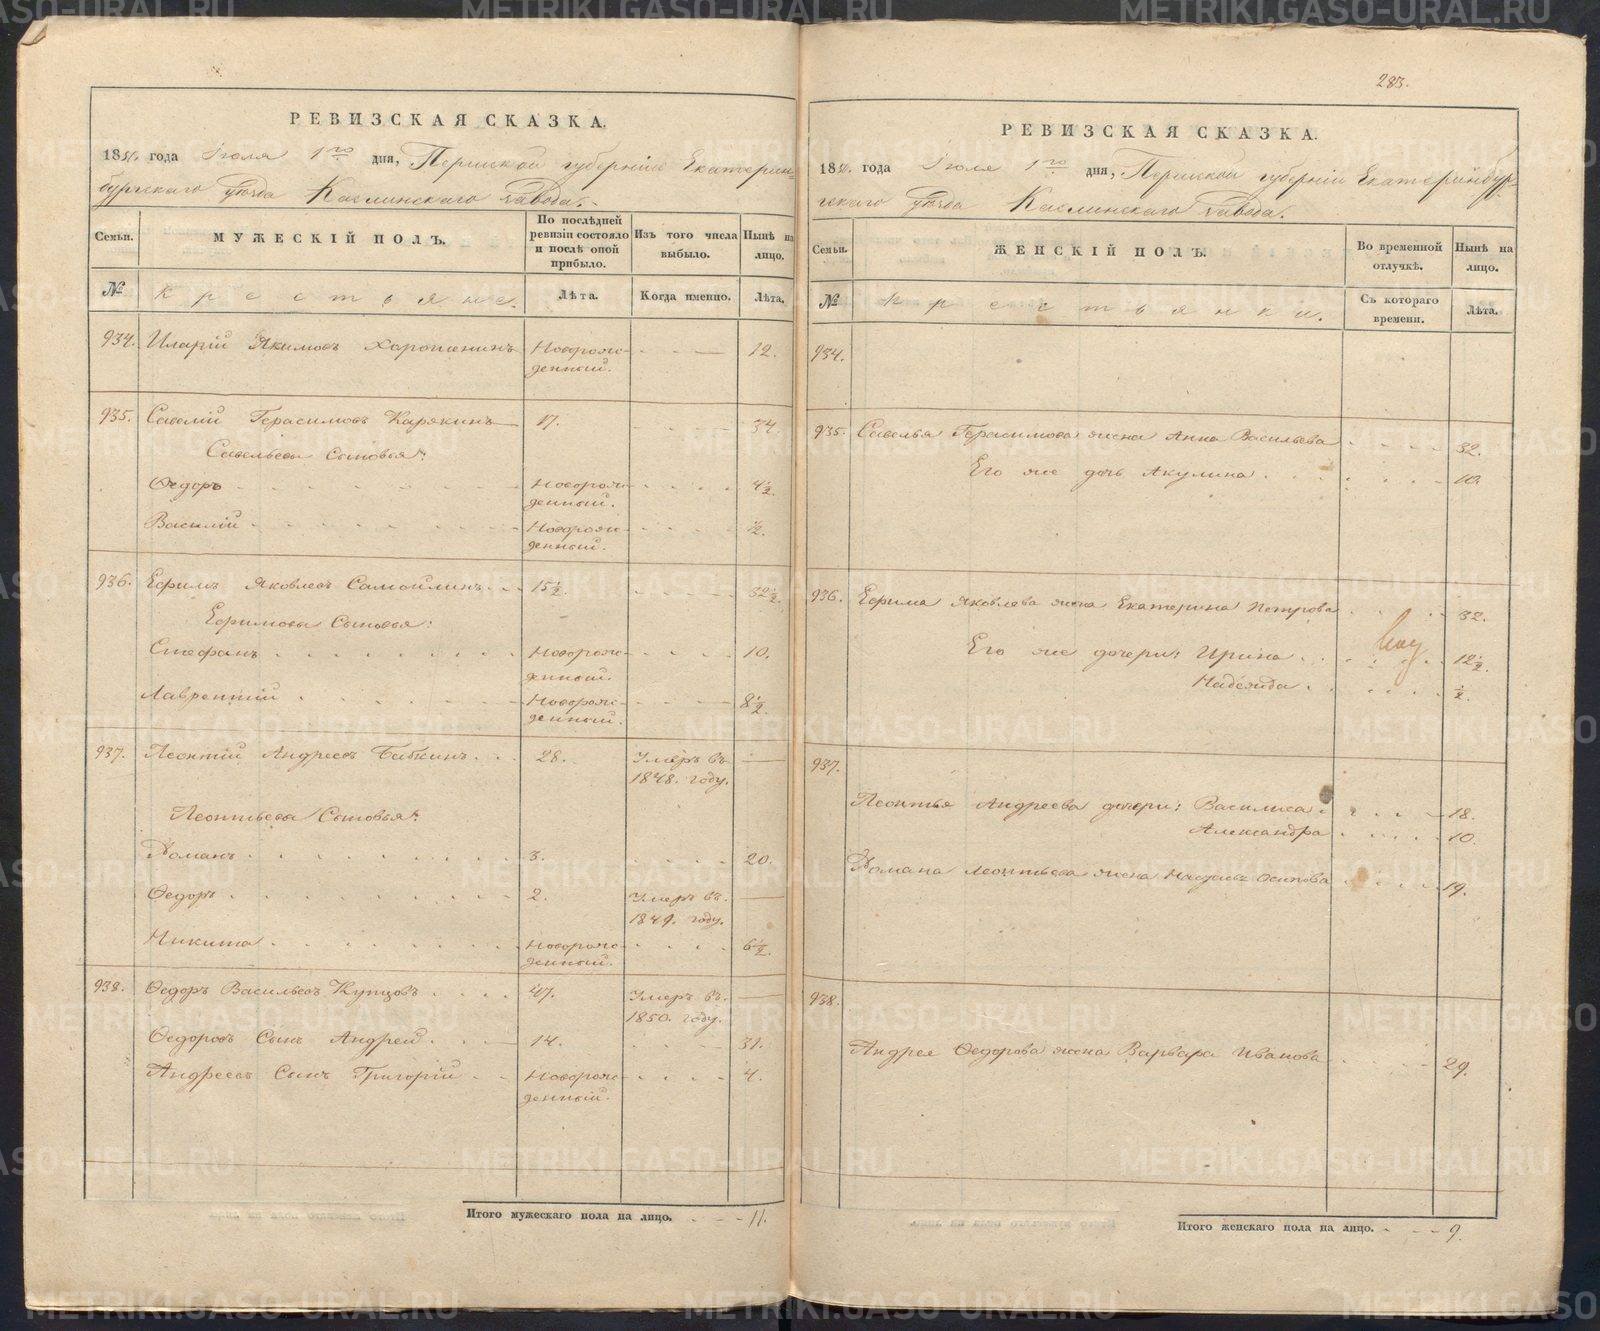 283.
РЕВИЗСКАЯ СКАЗКА.
185 года Іюля 1го дня, Пермской губерніи Екатерин-
бургскаго уѣзда Каслинскаго завода.
Семьи.
МУЖЕСКІЙ ПОЛЪ.
По послѣдней ревизіи состояло и послѣ оной прибыло.
Изъ того числа выбыло.
Нынѣ на лицо.
№
крестьяне.
Лѣта.
Когда именно.
Лѣта.
934. Иларій Якимовъ Новорож- 12.
денный.
935. Савелій Герасимовъ Карякинъ 17. 34.
Савельевы Сыновья:
Ѳедоръ Новорож- 4½.
денный.
Василій Новорож- ½.
денный.
936. Ефимъ Яковлевъ Самойлинъ 15½. 32½.
Ефимовы Сыновья:
Стефанъ Новорож- 10.
денный.
Лаврентій Новорож- 8½.
денный.
937. Леонтій Андреевъ Бабкинъ 28. Умеръ въ
1848. году.
Леонтьевы Сыновья:
Романъ 3. 20.
Ѳедоръ 2. Умеръ въ
1849. году.
Никита Новорож- 6½.
денный.
938. Ѳедоръ Васильевъ Купцовъ 47. Умеръ въ
1850. году.
Ѳедоровъ Сынъ Андрей 14. 31.
Андреевъ Сынъ Григорій Новорож- 4.
денный.
Итого мужескаго пола на лицо. 11.
РЕВИЗСКАЯ СКАЗКА.
185 года Іюля 1го дня, Пермской губерніи Екатеринбур-
гскаго уѣзда Каслинскаго завода.
Семьи.
ЖЕНСКІЙ ПОЛЪ.
Во временной отлучкѣ.
Нынѣ на лицо.
№
крестьянки.
Съ котораго времени.
Лѣта.
934.
935. Савелья Герасимова жена Анна Васильева 32.
Его же дочь Акулина 10.
936. Ефима Яковлева жена Екатерина Петрова 32.
Его же дочери: Ирина 12½.
Надежда ½.
937.
Леонтья Андреева дочери: Василиса 18.
Александра 10.
Романа Леонтьева жена Осипова 19.
938.
Андрея Ѳедорова жена Варвара Иванова 29.
Итого женскаго пола на лицо. 9.
METRIKI.GASO-URAL.RU